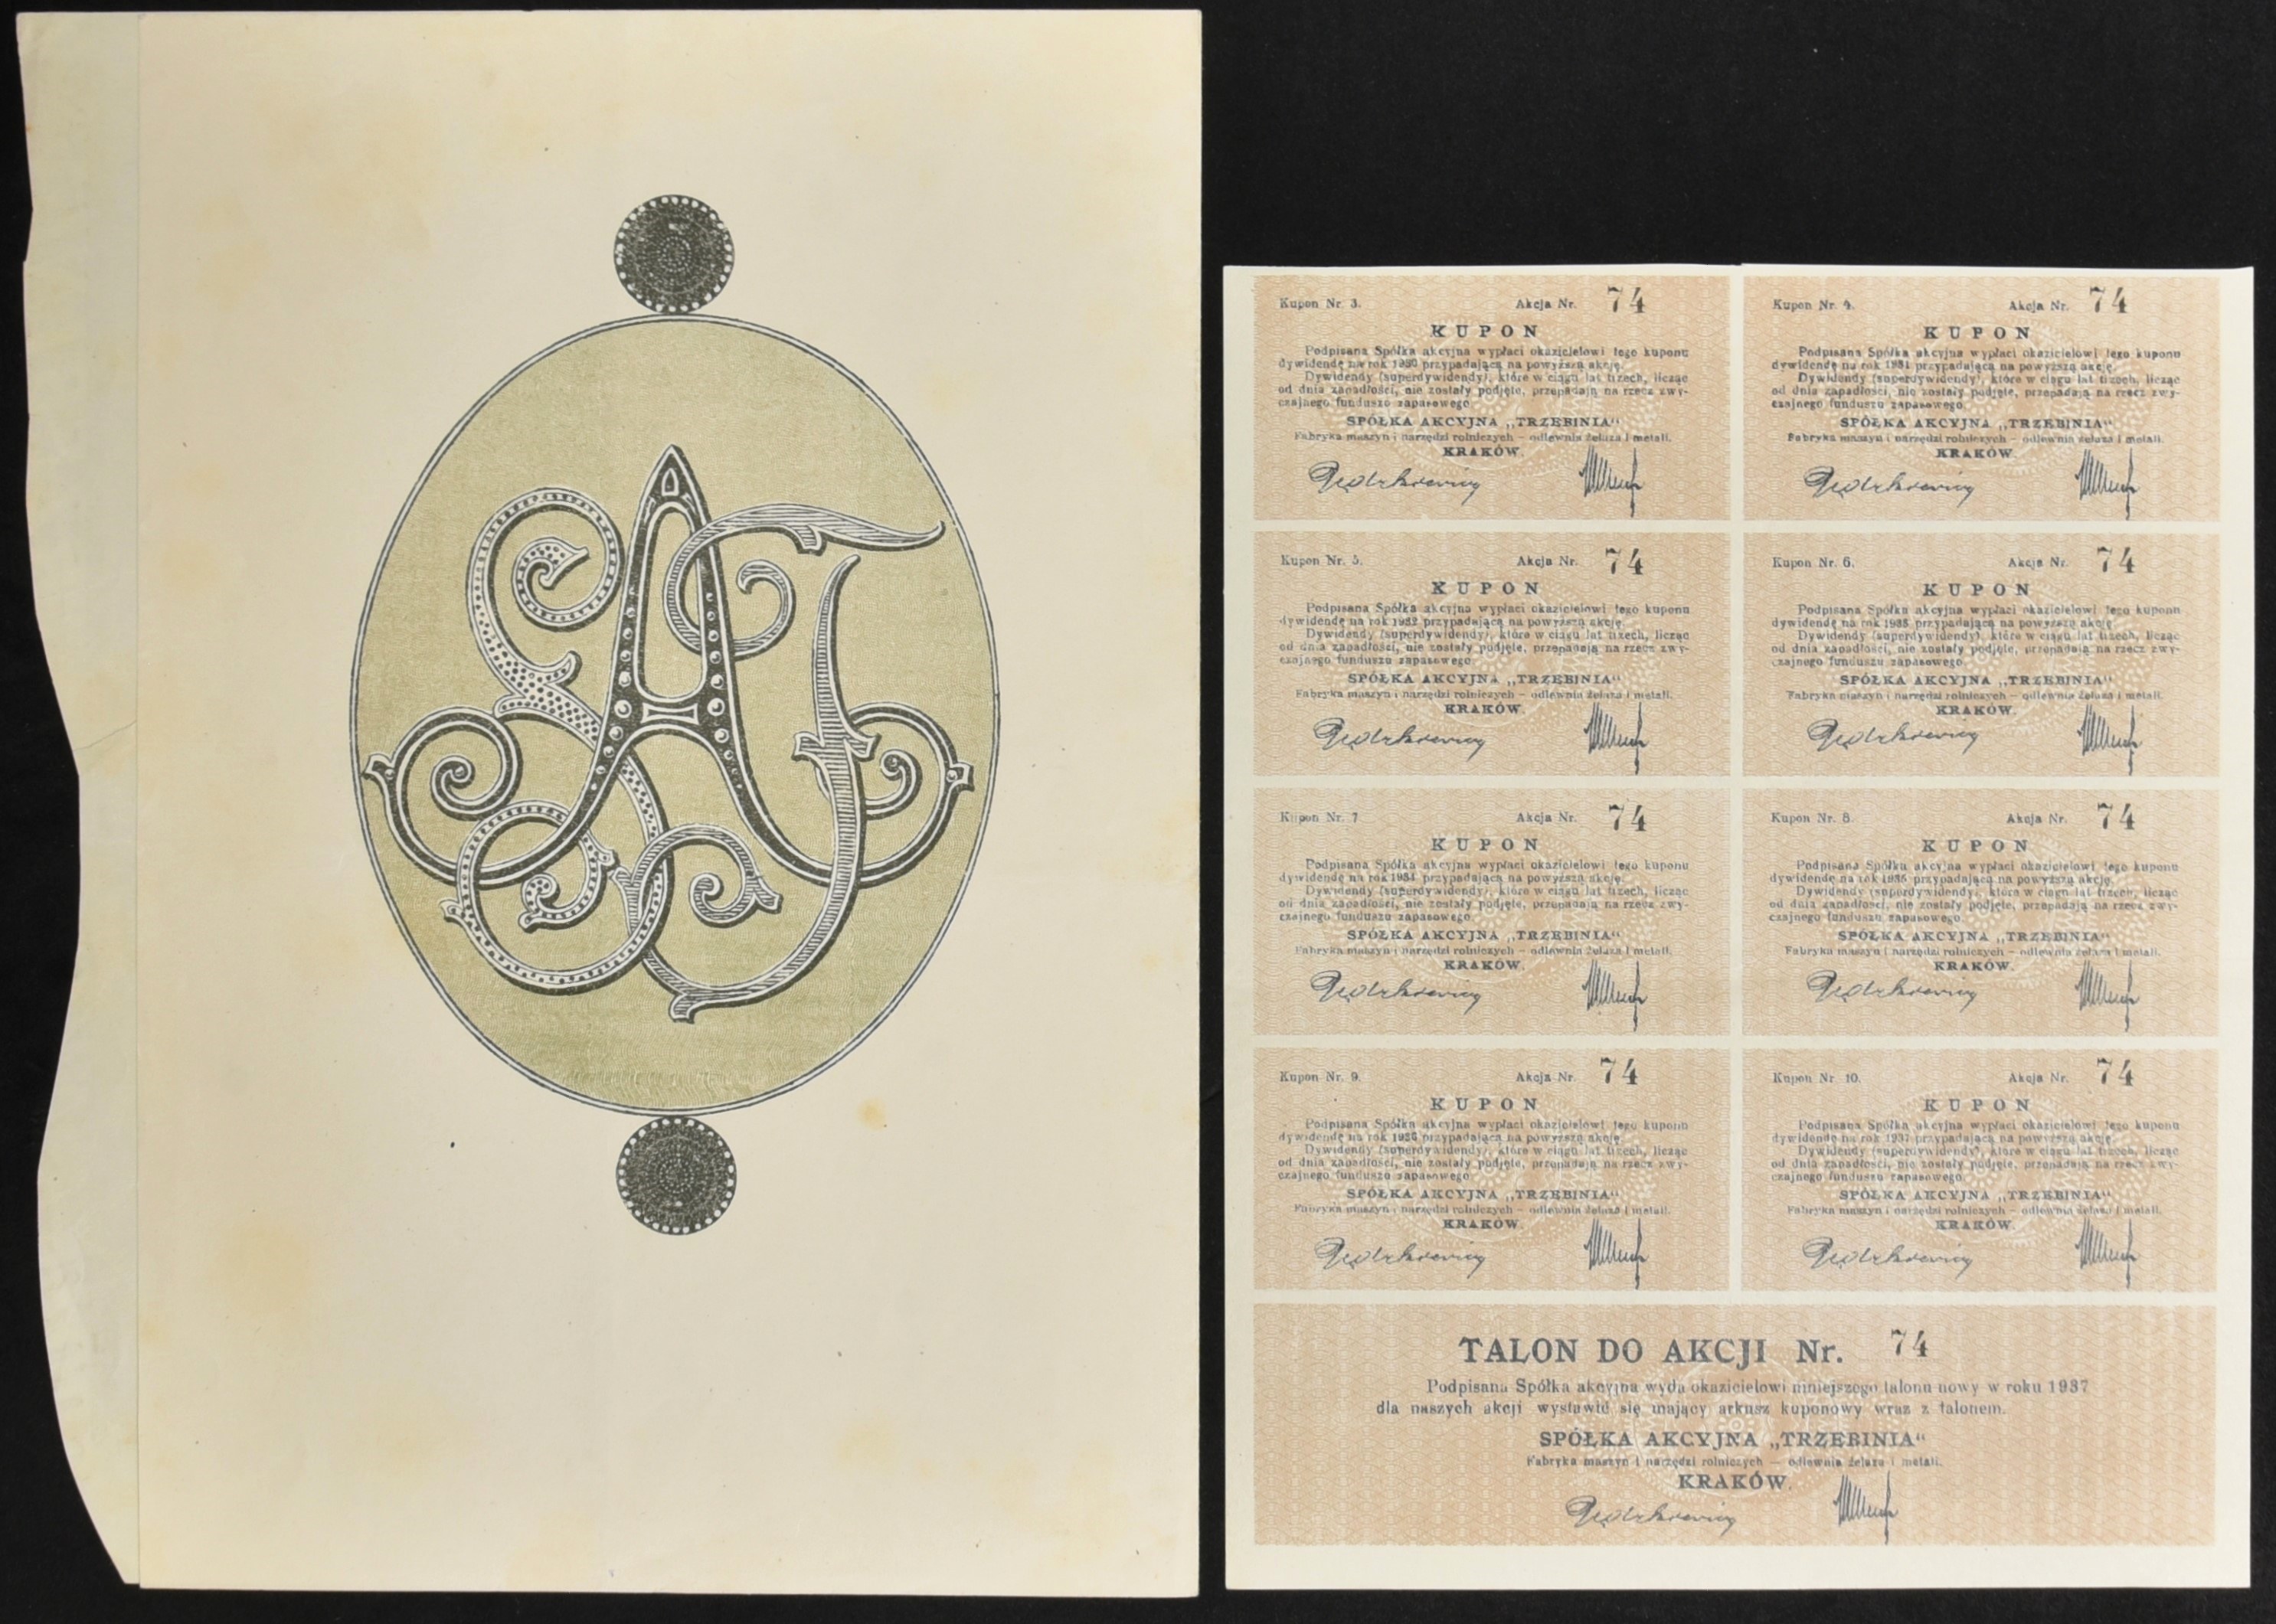 SAT
Kupon Nr. 3. Akcja Nr. 74
KUPON
Podpisana Spółka akcyjna wypłaci okazicielowi tego kuponu
dywidendę na rok 1930 przypadającą na powyższą akcję.
Dywidendy (superdywidendy), które w ciągu lat trzech, licząc
od dnia zapadłości, nie zostały podjęte, przepadają na rzecz zwy-
czajnego funduszu zapasowego.
SPÓŁKA AKCYJNA „TRZEBINIA“
Fabryka maszyn i narzędzi rolniczych — odlewnia żelaza i metali.
KRAKÓW.
Kupon Nr. 4. Akcja Nr. 74
KUPON
Podpisana Spółka akcyjna wypłaci okazicielowi tego kuponu
dywidendę na rok 1931 przypadającą na powyższą akcję.
Dywidendy (superdywidendy), które w ciągu lat trzech, licząc
od dnia zapadłości, nie zostały podjęte, przepadają na rzecz zwy-
czajnego funduszu zapasowego.
SPÓŁKA AKCYJNA „TRZEBINIA“
Fabryka maszyn i narzędzi rolniczych — odlewnia żelaza i metali.
KRAKÓW.
Kupon Nr. 5. Akcja Nr. 74
KUPON
Podpisana Spółka akcyjna wypłaci okazicielowi tego kuponu
dywidendę na rok 1932 przypadającą na powyższą akcję.
Dywidendy (superdywidendy), które w ciągu lat trzech, licząc
od dnia zapadłości, nie zostały podjęte, przepadają na rzecz zwy-
czajnego funduszu zapasowego.
SPÓŁKA AKCYJNA „TRZEBINIA“
Fabryka maszyn i narzędzi rolniczych — odlewnia żelaza i metali.
KRAKÓW.
Kupon Nr. 6. Akcja Nr. 74
KUPON
Podpisana Spółka akcyjna wypłaci okazicielowi tego kuponu
dywidendę na rok 1933 przypadającą na powyższą akcję.
Dywidendy (superdywidendy), które w ciągu lat trzech, licząc
od dnia zapadłości, nie zostały podjęte, przepadają na rzecz zwy-
czajnego funduszu zapasowego.
SPÓŁKA AKCYJNA „TRZEBINIA“
Fabryka maszyn i narzędzi rolniczych — odlewnia żelaza i metali.
KRAKÓW.
Kupon Nr. 7 Akcja Nr. 74
KUPON
Podpisana Spółka akcyjna wypłaci okazicielowi tego kuponu
dywidendę na rok 1934 przypadającą na powyższą akcję.
Dywidendy (superdywidendy), które w ciągu lat trzech, licząc
od dnia zapadłości, nie zostały podjęte, przepadają na rzecz zwy-
czajnego funduszu zapasowego.
SPÓŁKA AKCYJNA „TRZEBINIA“
Fabryka maszyn i narzędzi rolniczych — odlewnia żelaza i metali.
KRAKÓW.
Kupon Nr. 8. Akcja Nr. 74
KUPON
Podpisana Spółka akcyjna wypłaci okazicielowi tego kuponu
dywidendę na rok 1935 przypadającą na powyższą akcję.
Dywidendy (superdywidendy), które w ciągu lat trzech, licząc
od dnia zapadłości, nie zostały podjęte, przepadają na rzecz zwy-
czajnego funduszu zapasowego.
SPÓŁKA AKCYJNA „TRZEBINIA“
Fabryka maszyn i narzędzi rolniczych — odlewnia żelaza i metali.
KRAKÓW.
Kupon Nr. 9. Akcja Nr. 74
KUPON
Podpisana Spółka akcyjna wypłaci okazicielowi tego kuponu
dywidendę na rok 1936 przypadającą na powyższą akcję.
Dywidendy (superdywidendy), które w ciągu lat trzech, licząc
od dnia zapadłości, nie zostały podjęte, przepadają na rzecz zwy-
czajnego funduszu zapasowego.
SPÓŁKA AKCYJNA „TRZEBINIA“
Fabryka maszyn i narzędzi rolniczych — odlewnia żelaza i metali.
KRAKÓW.
Kupon Nr 10. Akcja Nr. 74
KUPON
Podpisana Spółka akcyjna wypłaci okazicielowi tego kuponu
dywidendę na rok 1937 przypadającą na powyższą akcję.
Dywidendy (superdywidendy), które w ciągu lat trzech, licząc
od dnia zapadłości, nie zostały podjęte, przepadają na rzecz zwy-
czajnego funduszu zapasowego.
SPÓŁKA AKCYJNA „TRZEBINIA“
Fabryka maszyn i narzędzi rolniczych — odlewnia żelaza i metali.
KRAKÓW.
TALON DO AKCJI Nr. 74
Podpisana Spółka akcyjna wyda okazicielowi niniejszego talonu nowy w roku 1937
dla naszych akcji wystawić się mający arkusz kuponowy wraz z talonem.
SPÓŁKA AKCYJNA „TRZEBINIA“
Fabryka maszyn i narzędzi rolniczych — odlewnia żelaza i metali.
KRAKÓW.